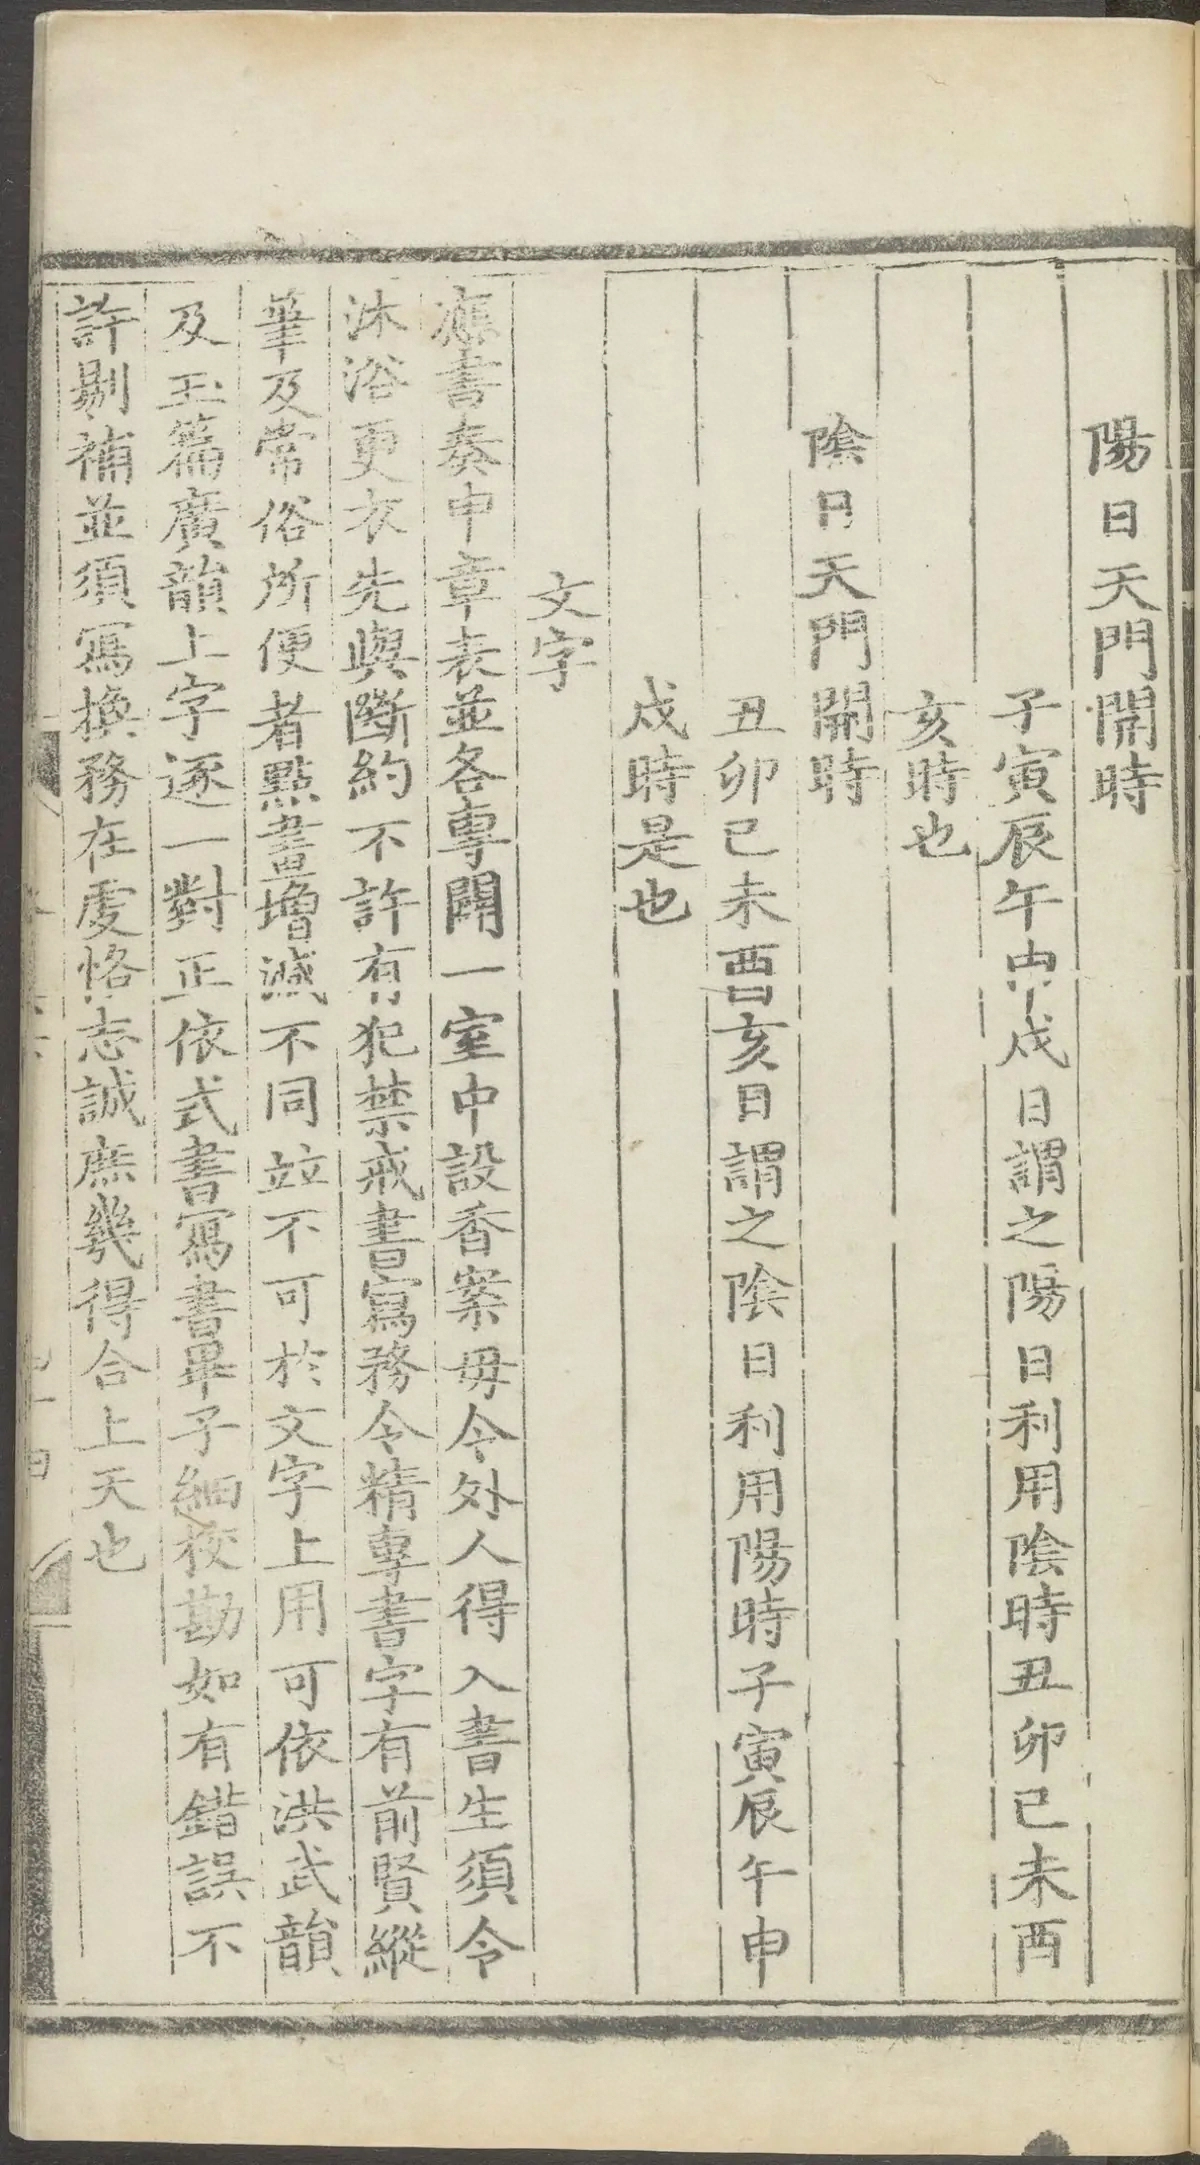 陽日天門開時
子寅辰午申戌日謂之陽日利用陰時丑卯巳未酉
亥時也
陰日天門開時
丑卯巳未酉亥日謂之陰日利用陽時子寅辰午申
戌時是也
文字
應書奏申章表並各專闢一室中設香案毋令外人得入書生須令
沐浴更衣先與斷約不許有犯禁戒書寫務令精專書字有前賢縱
筆及常俗所便者點畫增減不同竝不可於文字上用可依洪武韻
及玉篇廣韻上字逐一對正依式書寫書畢子細校勘如有錯誤不
許剔補並須寫換務在虔恪志誠庶幾得合上天也